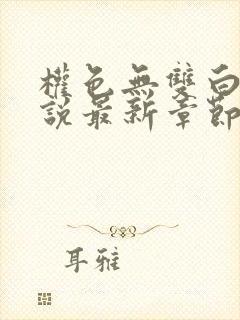 權色無雙白
說最新章節
耳雅